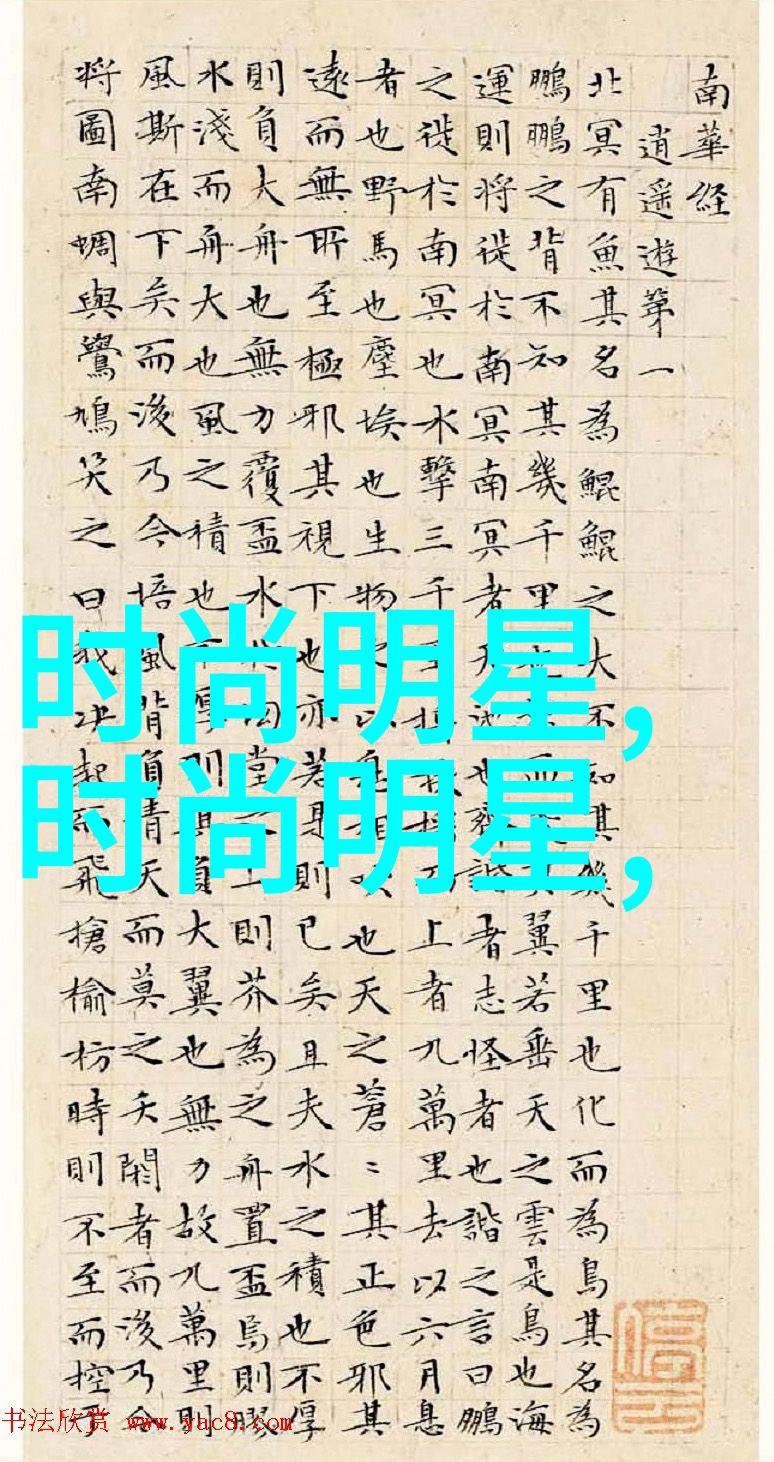 南華經
逍遥遊第一
北冥有魚其名為鯤鯤之大不知其幾千里也化而為鳥其名為
鵬鵬之背不知其幾千里也而其翼若垂天之雲是鳥也海
運則将徙於南冥南冥者天池也齊諧者志怪者也諧之言曰鵬
之徙於南冥也水擊三千里摶扶摇上者九萬里去以六月息
者也野馬也塵埃也生物之以息相吹也天之蒼〻其正色邪其
遠而無所至極邪其視下也亦若是則已矣且夫水之積也不厚
則負大舟也無力覆盃水於坳堂之上則芥為之舟置盃焉則膠
水淺而舟大也風之積也不厚則其負大翼也無力故九萬里則
風斯在下矣而後乃今培風背負青天而莫之夭閼者而後乃今
将圖南蜩與鷽鳩笑之曰我决起而飛搶榆枋時則不至而控於
时尚明星,
时尚明星,
书法欣赏 www.yac8.com